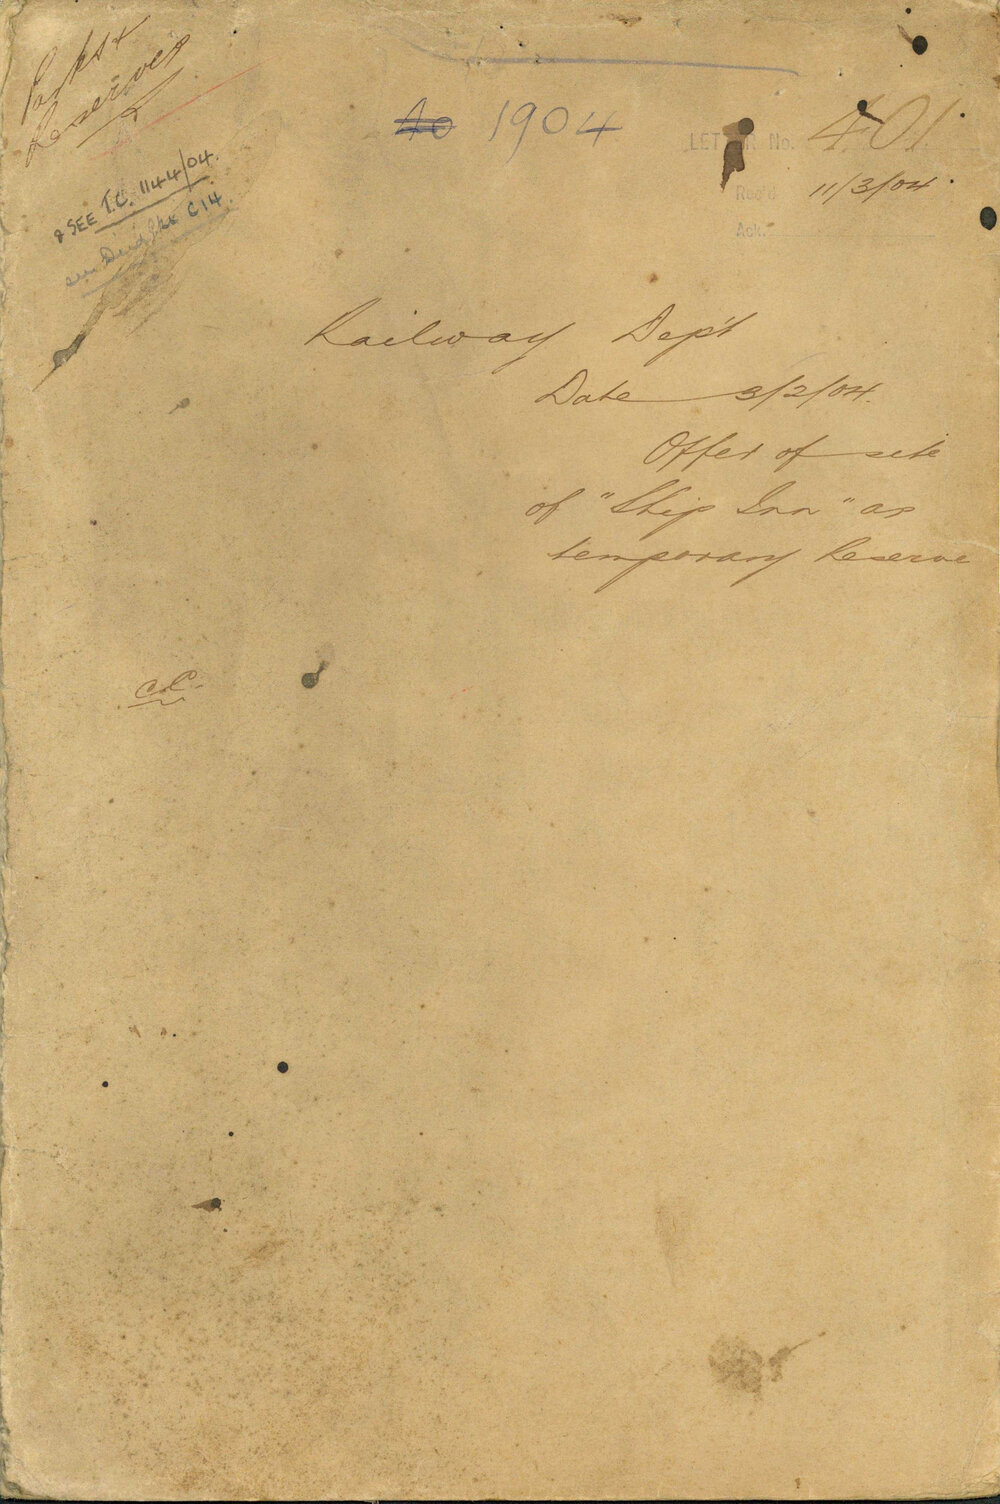 Parks &
Reserves
& SEE T.C. 1144/04.
C14
1904
LETTER No. 401
Rec'd 11/3/04
Ack.
Railway Dep't
Date 3/2/04.
Offer of site
of "Ship Inn" as
temporary Reserve
C.C.